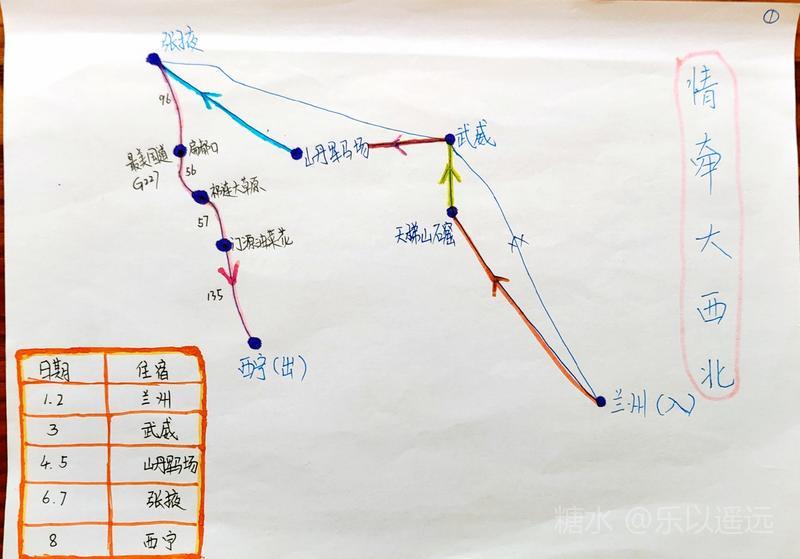 ①
情牵大西北
张掖
96
最美国道
G227
扁都口
56
祁连大草原
57
门源油菜花
135
西宁(出)
山丹军马场
武威
天梯山石窟
兰州(入)
日期 住宿
1.2 兰州
3 武威
4.5 山丹军马场
6.7 张掖
8 西宁
糖水 @乐以遥远